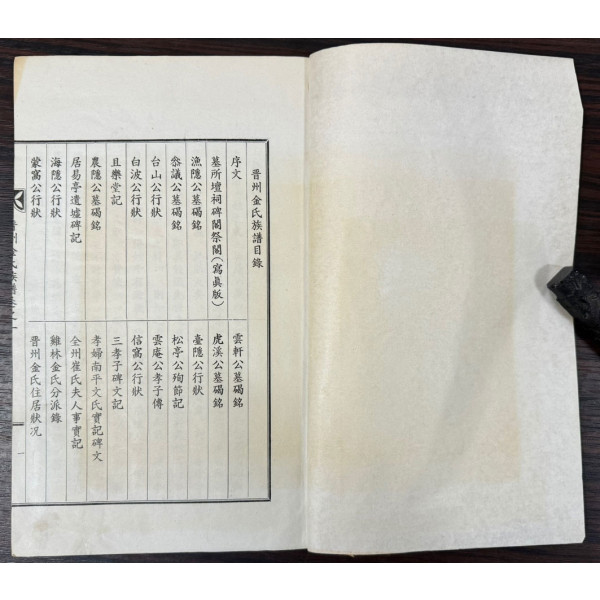 晋州金氏族譜目錄
序文
墓所壇祠碑閣祭閣(寫眞版)
漁隱公墓碣銘
叅議公墓碣銘
台山公行狀
白波公行狀
且樂堂記
農隱公墓碣銘
居易亭遺墟碑記
海隱公行狀
蒙窩公行狀
雲軒公墓碣銘
虎溪公墓碣銘
臺隱公行狀
松亭公殉節記
雲庵公孝子傳
信窩公行狀
三孝子碑文記
孝婦南平文氏實記碑文
全州崔氏夫人事實記
雞林金氏分派錄
晋州金氏住居狀况
晋州金氏族譜卷之一
一